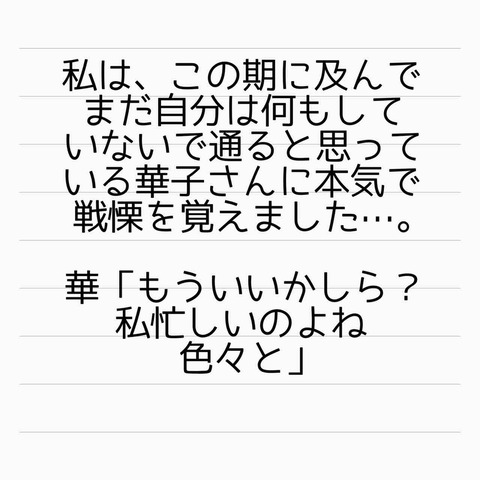 私は、この期に及んで
まだ自分は何もして
いないで通ると思って
いる華子さんに本気で
戦慄を覚えました…。
華「もういいかしら？
私忙しいのよね
色々と」